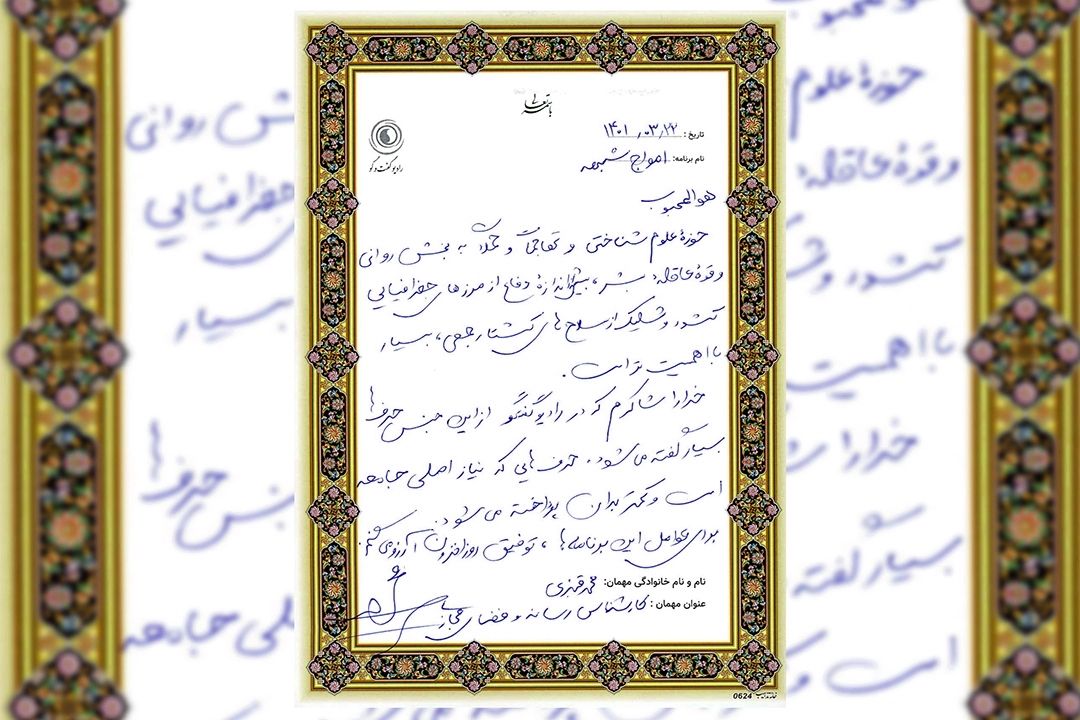 باسمه تعالی
رادیو گفت‌وگو
تاریخ: ۱۴۰۱٫۰۳٫۲۲
نام برنامه: امواج شبهه
هوالمحبوب
حوزهٔ علوم شناختی و تهاجم و حمله به بخش روانی
و قوهٔ عاقلهٔ بشر، بیش از اندازهٔ دفاع از مرزهای جغرافیایی
کشور و شلیک از سلاح‌های کشتار جمعی، بسیار
بااهمیت تر است.
خدا را شاکرم که در رادیو گفتگو از این جنس حرف‌ها
بسیار گفته می‌شود. حرف‌هایی که نیاز اصلی جامعه
است و کمتر بدان پرداخته می‌شود.
برای عوامل این برنامه‌ها، توفیق روزافزون آرزو می‌کنم.
نام و نام خانوادگی مهمان: محمد قمزی
عنوان مهمان: کارشناس رسانه و فضای مجازی
0624